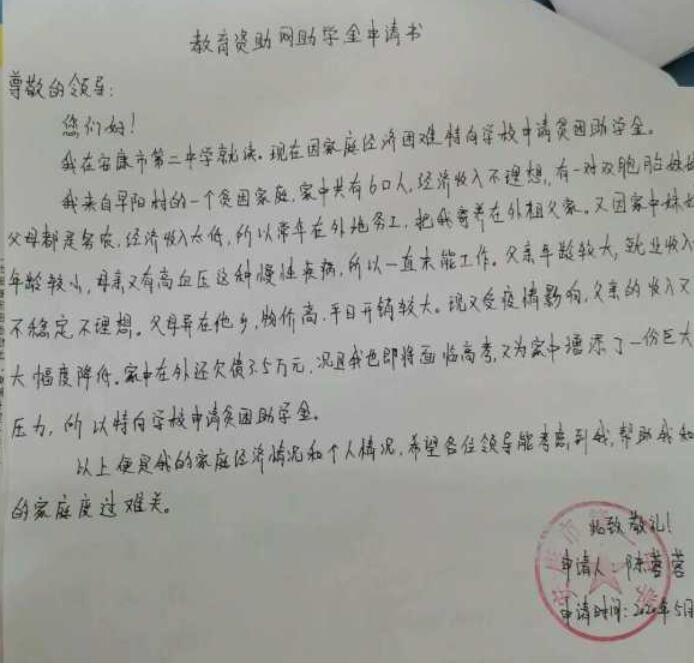 教育资助网助学金申请书
尊敬的领导:
您们好!
我在安康市第二中学就读。现在因家庭经济困难特向学校申请贫困助学金。
我来自早阳村的一个贫困家庭,家中共有6口人,经济收入不理想,有一对双胞胎妹妹
父母都是务农,经济收入太低,所以常年在外地务工,把我寄养在外祖父家。又因家中妹妹
年龄较小,母亲又有高血压这种慢性疾病,所以一直未能工作。父亲年龄较大,就业收入
不稳定,不理想。父母异在他乡,物价高,平日开销较大。现又受疫情影响,父亲的收入又
大幅度降低。家中在外还欠债3.5万元,况且我也即将面临高考,又为家中增添了一份巨大
压力,所以特向学校申请贫困助学金。
以上便是我的家庭经济情况和个人情况,希望各位领导能考虑到我,帮助我和
的家庭度过难关。
此致敬礼!
申请人:陈蓉蓉
申请时间:2020年5月